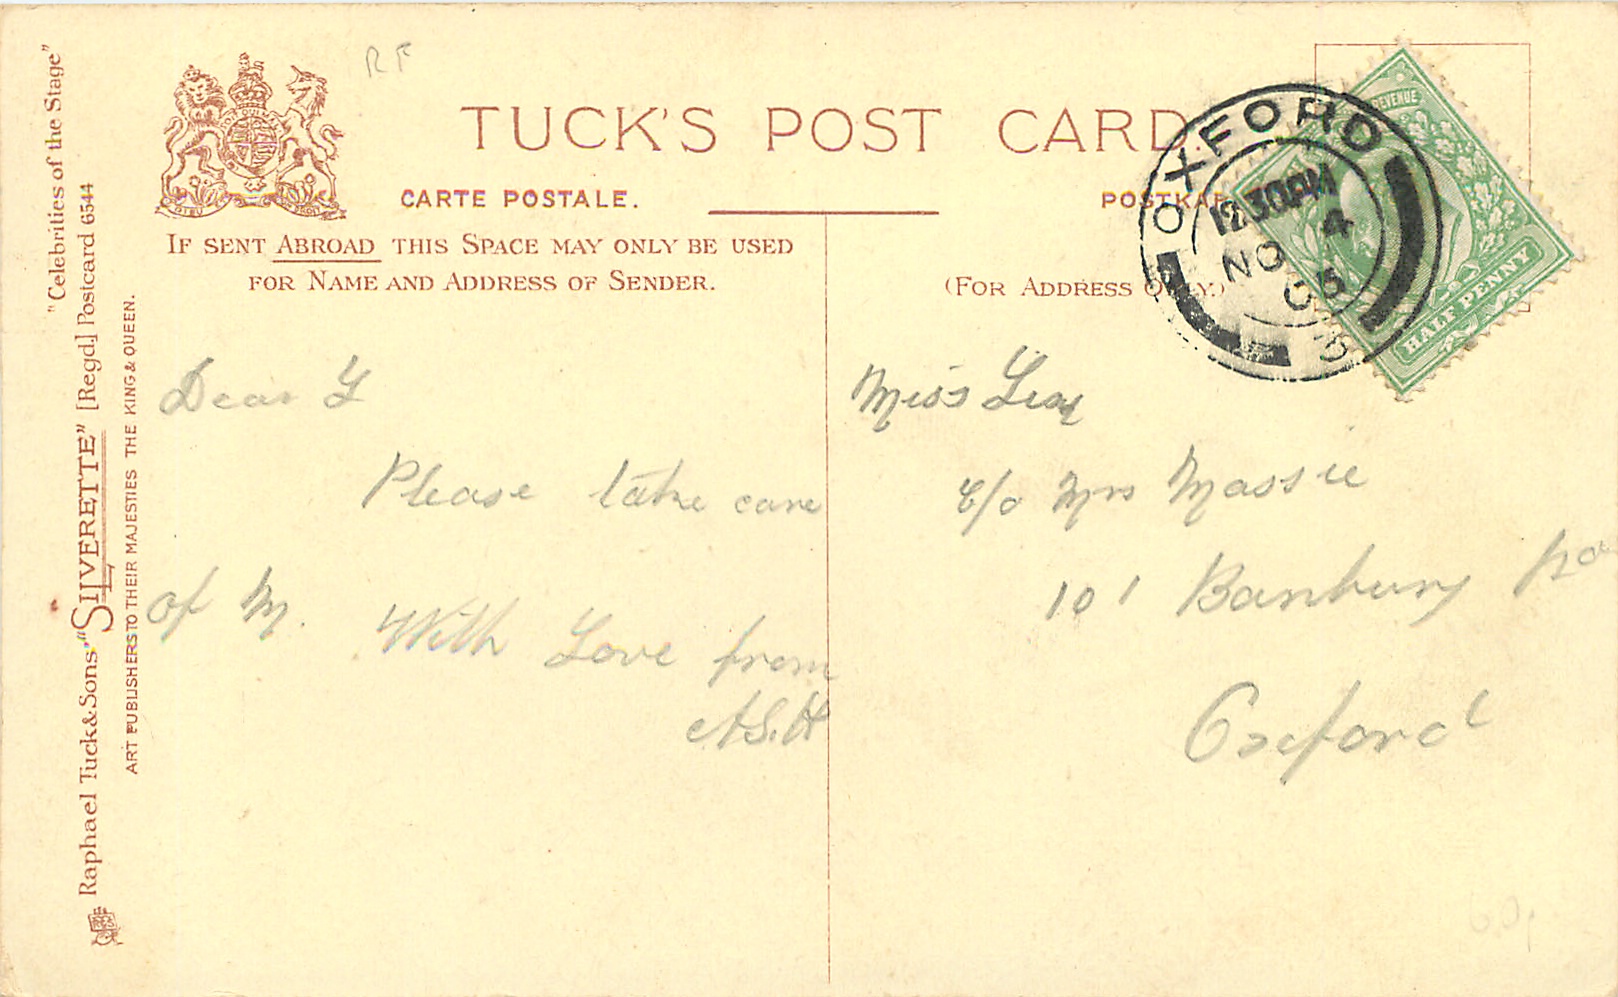 "Celebrities of the Stage"
Raphael Tuck & Sons' "SILVERETTE" [Regd] Postcard 6544
ART PUBLISHERS TO THEIR MAJESTIES THE KING & QUEEN.
RF
TUCK'S POST CARD.
CARTE POSTALE.
POSTKAR
IF SENT ABROAD THIS SPACE MAY ONLY BE USED
FOR NAME AND ADDRESS OF SENDER.
(FOR ADDRESS ONLY.)
OXFORD
12.30PM
NO 4
05
REVENUE
HALF PENNY
Dear Y
Please take care
of M. With Love from
A.S.H
Miss
c/o Mrs Massie
101 Banbury
Oxford